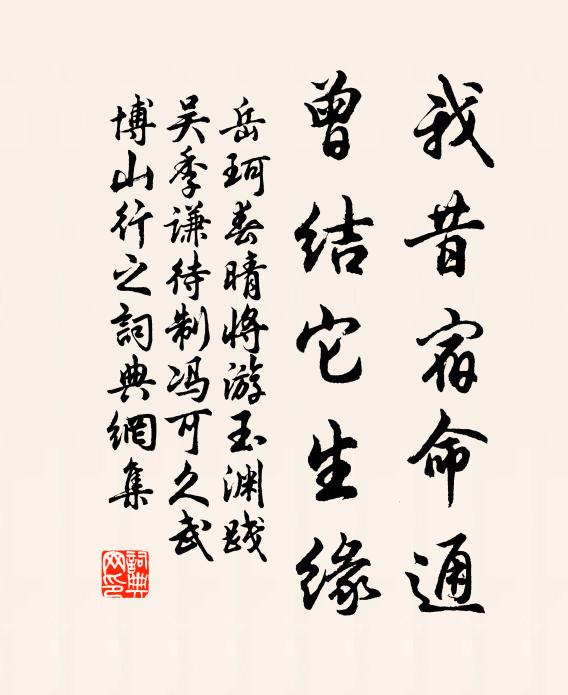 我昔宿命通
曾结它生缘
岳珂春晴将游玉渊践
吴季谦待制冯可久武
博山行之詞典網集
詞典网印